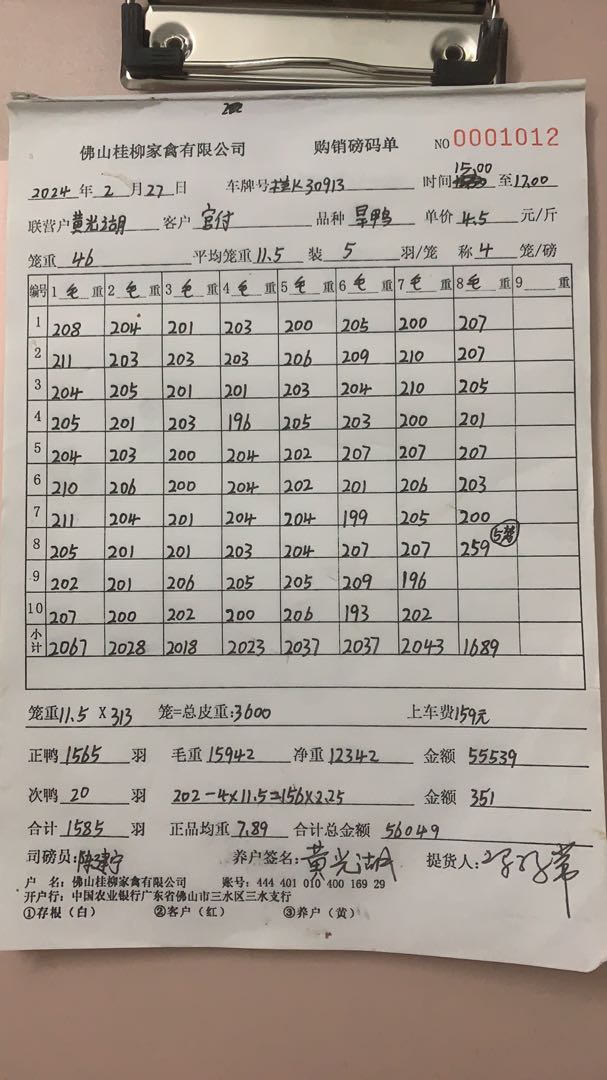 佛山桂柳家禽有限公司 购销磅码单 NO 0001012
2024 年 2 月 27 日 车牌号 K30913 时间 15.00 至 17.00
联营户 黄光湖 客户 宫付 品种 旱鸭 单价 4.5 元/斤
笼重 46 平均笼重 11.5 装 5 羽/笼 称 4 笼/磅
编号 1 毛 重 2 毛 重 3 毛 重 4 毛 重 5 毛 重 6 毛 重 7 毛 重 8 毛 重 9 重
1 208 204 201 203 200 205 200 207
2 211 203 203 203 206 209 210 207
3 204 205 201 201 203 204 210 205
4 205 201 203 196 205 203 200 201
5 204 203 200 204 202 207 207 207
6 210 206 200 204 202 201 206 203
7 211 204 201 204 204 199 205 200
8 205 201 201 203 204 207 207 259 5笼
9 202 201 206 205 205 209 196
10 207 200 202 200 206 193 202
小计 2067 2028 2018 2023 2037 2037 2043 1689
笼重 11.5 X 313 笼=总皮重: 3600 上车费 159元
正鸭 1565 羽 毛重 15942 净重 12342 金额 55539
次鸭 20 羽 202-4×11.5=156×2.25 金额 351
合计 1585 羽 正品均重 7.89 合计总金额 56049
司磅员: 养户签名: 黄光湖 提货人:
户 名: 佛山桂柳家禽有限公司 账号: 444 401 010 400 169 29
开户行: 中国农业银行广东省佛山市三水区三水支行
①存根（白） ②客户（红） ③养户（黄）